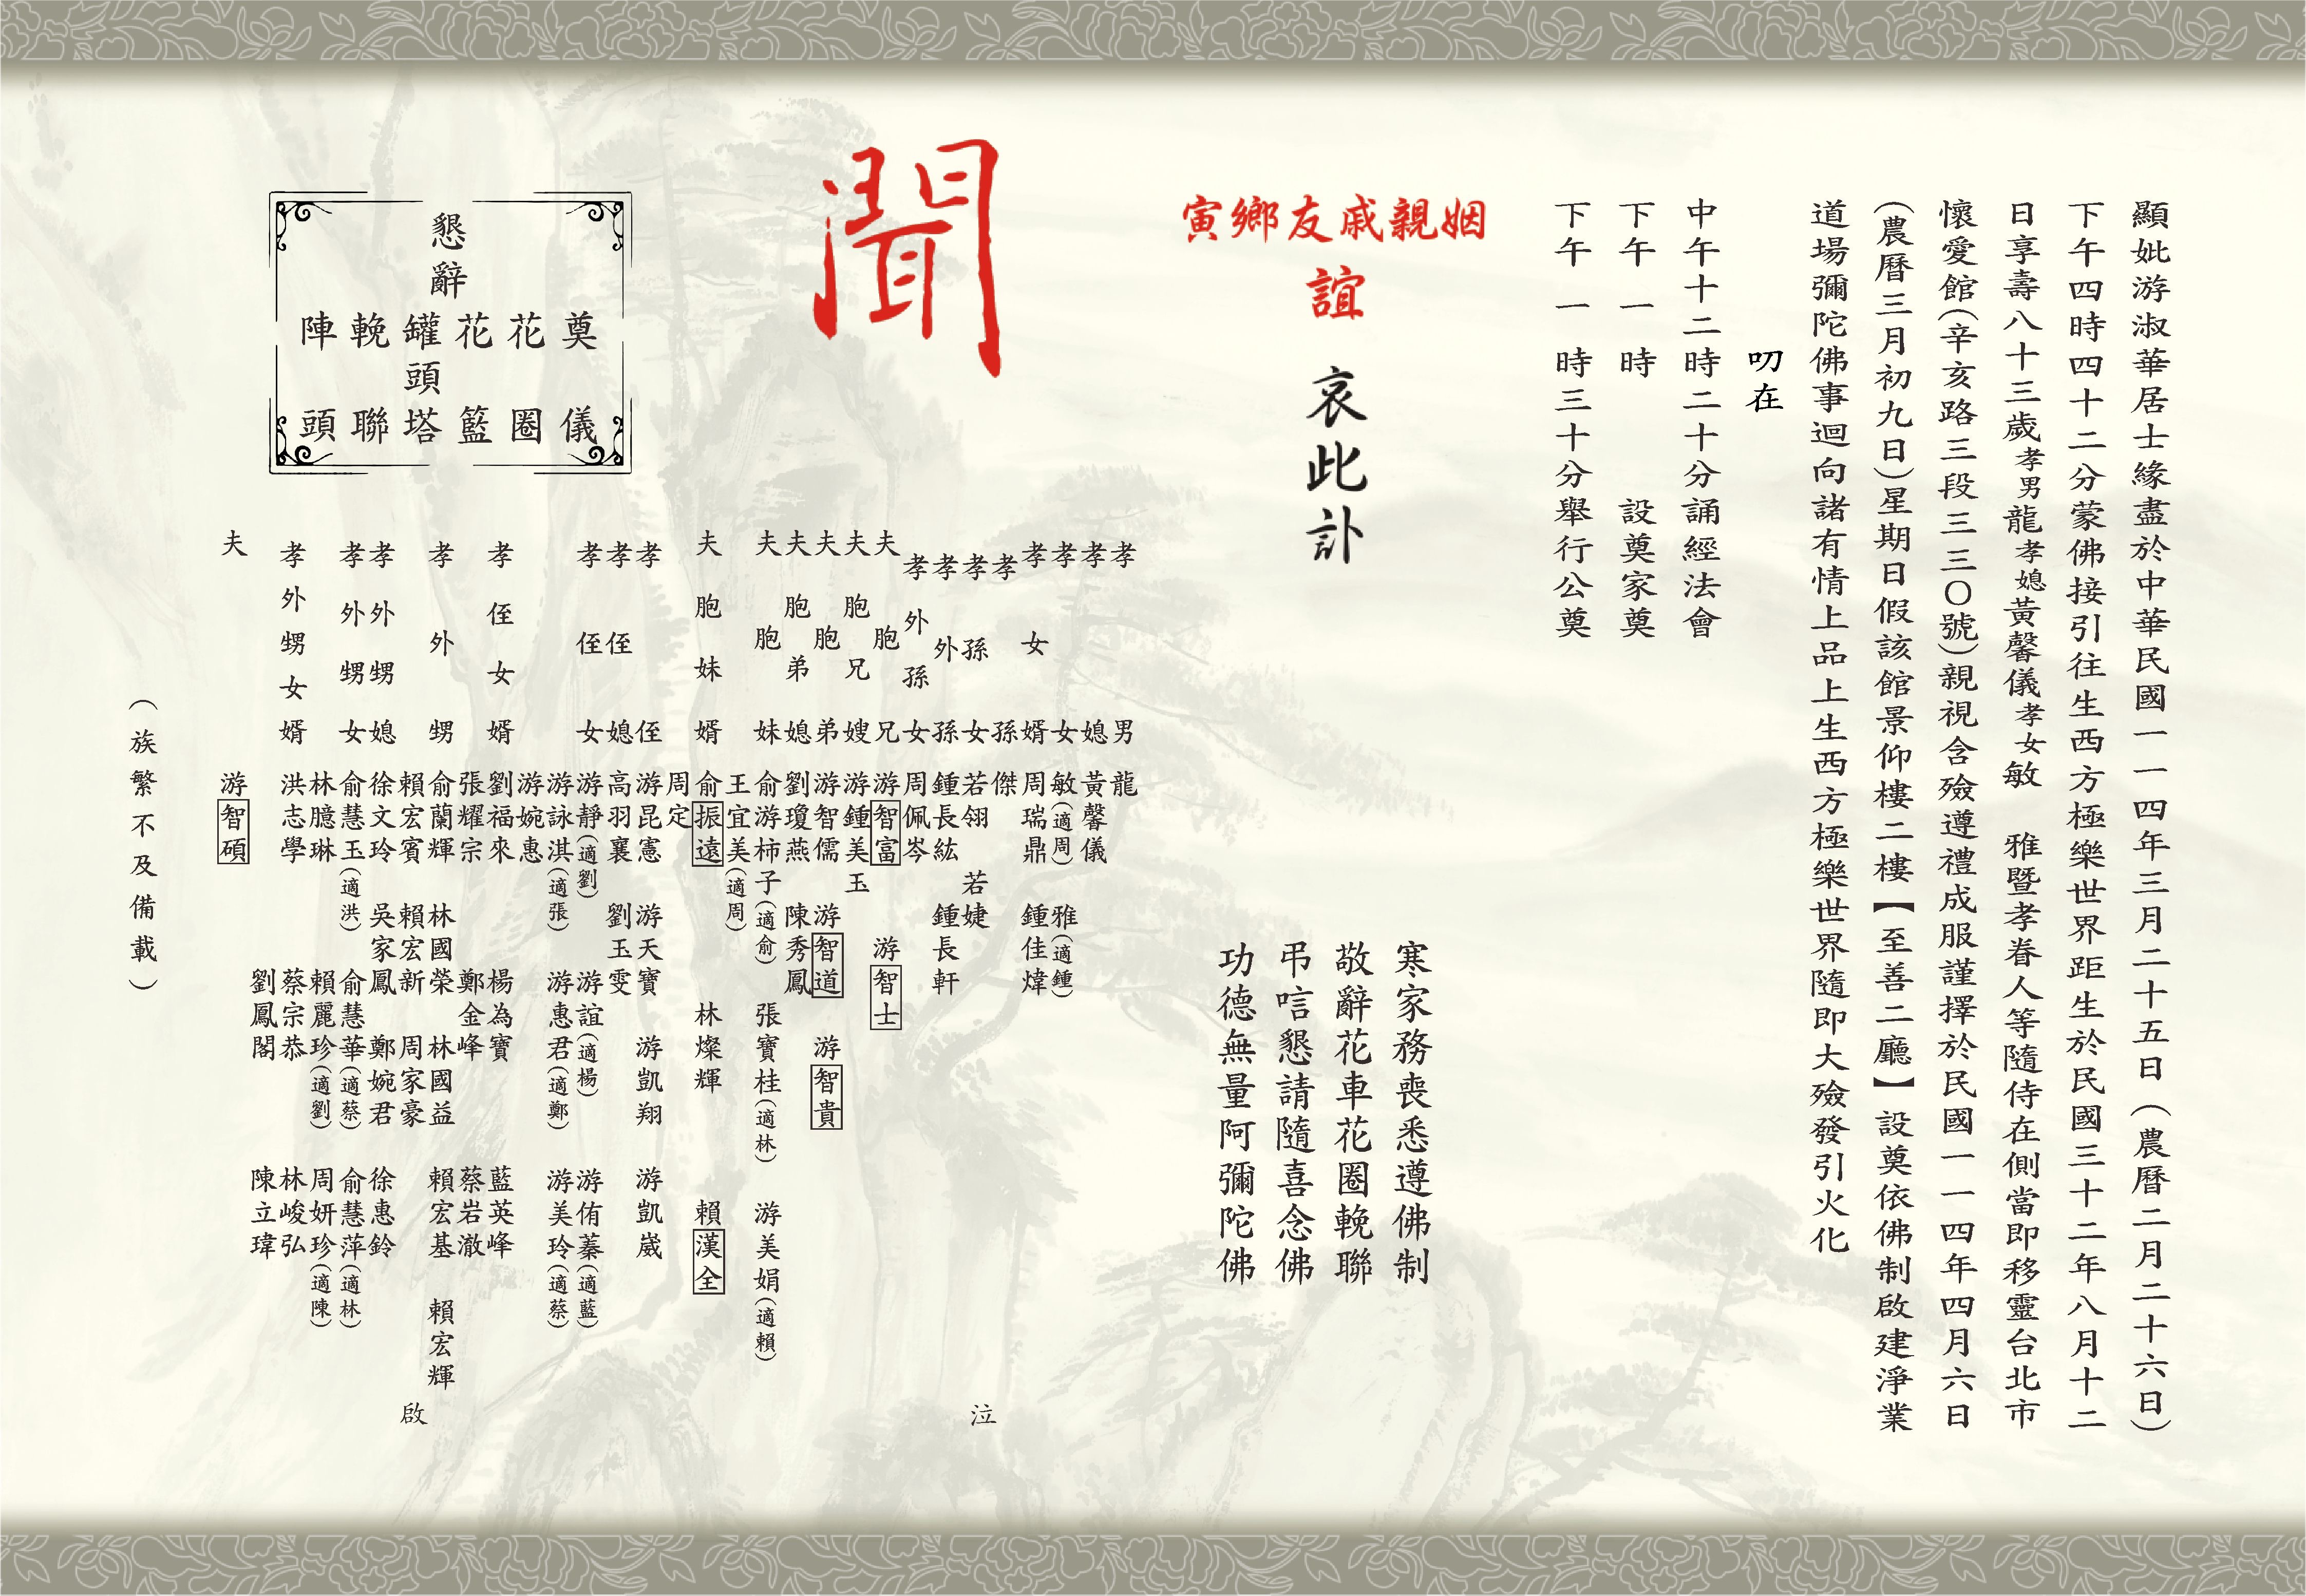 顯妣游淑華居士緣盡於中華民國一一四年三月二十五日(農曆二月二十六日)
下午四時四十二分蒙佛接引往生西方極樂世界距生於民國三十二年八月十二
日享壽八十三歲孝男龍孝媳黃馨儀孝女敏 雅暨孝眷人等隨侍在側當即移靈台北市
懷愛館(辛亥路三段三三○號)親視含殮遵禮成服謹擇於民國一一四年四月六日
(農曆三月初九日)星期日假該館景仰樓二樓【至善二廳】設奠依佛制啟建淨業
道場彌陀佛事迴向諸有情上品上生西方極樂世界隨即大殮發引火化
叨在
中午十二時二十分誦經法會
下午一時 設奠家奠
下午一時三十分舉行公奠
姻親戚友鄉寅
誼
哀此訃
寒家務喪悉遵佛制
敬辭花車花圈輓聯
弔唁懇請隨喜念佛
功德無量阿彌陀佛
聞
孝男 龍
孝媳 黃馨儀
孝女 敏(適周) 雅(適鍾)
孝女婿 周瑞鼎 鍾佳煒
孝孫 傑
孝孫女 若翎 若婕
孝外孫 鍾長紘 鍾長軒
孝外孫女 周佩岑
夫胞兄 游智富 游智士
夫胞兄嫂 游鍾美玉
夫胞弟 游智儒 游智道 游智貴
夫胞弟媳 劉瓊燕 陳秀鳳
夫胞妹 俞游柿子(適俞) 張寶桂(適林) 游美娟(適賴)
王宜美(適周)
夫胞妹婿 俞振遠 林燦輝 賴漢全
周定
孝侄 游昆憲 游天寶 游凱翔 游凱崴
孝侄媳 高羽襄 劉玉雯
孝侄女 游靜(適劉) 游誼(適楊) 游侑蓁(適藍)
游詠淇(適張) 游惠君(適鄭) 游美玲(適蔡)
游婉惠
孝侄女婿 劉福來 楊為寶 藍英峰
張耀宗 鄭金峰 蔡岩澈
孝外甥 俞蘭輝 林國榮 林國益 賴宏基 賴宏輝
賴宏賓 賴宏新 周家豪
孝外甥媳 徐文玲 吳家鳳 鄭婉君 徐惠鈴
孝外甥女 俞慧玉(適洪) 俞慧華(適蔡) 俞慧萍(適林)
林臆琳 賴麗珍(適劉) 周妍珍(適陳)
孝外甥女婿 洪志學 蔡宗恭 林峻弘
劉鳳閣 陳立瑋
夫 游智碩
泣
啟
(族繁不及備載)
懇辭
奠儀
花圈
花籃
罐頭塔
輓聯
陣頭